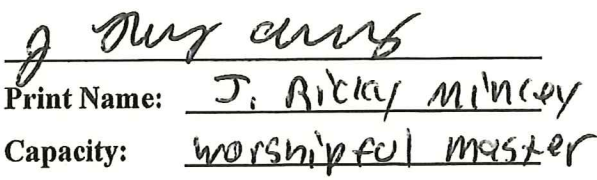 Print Name: J. Ricky Mincey
Capacity: worshipful master